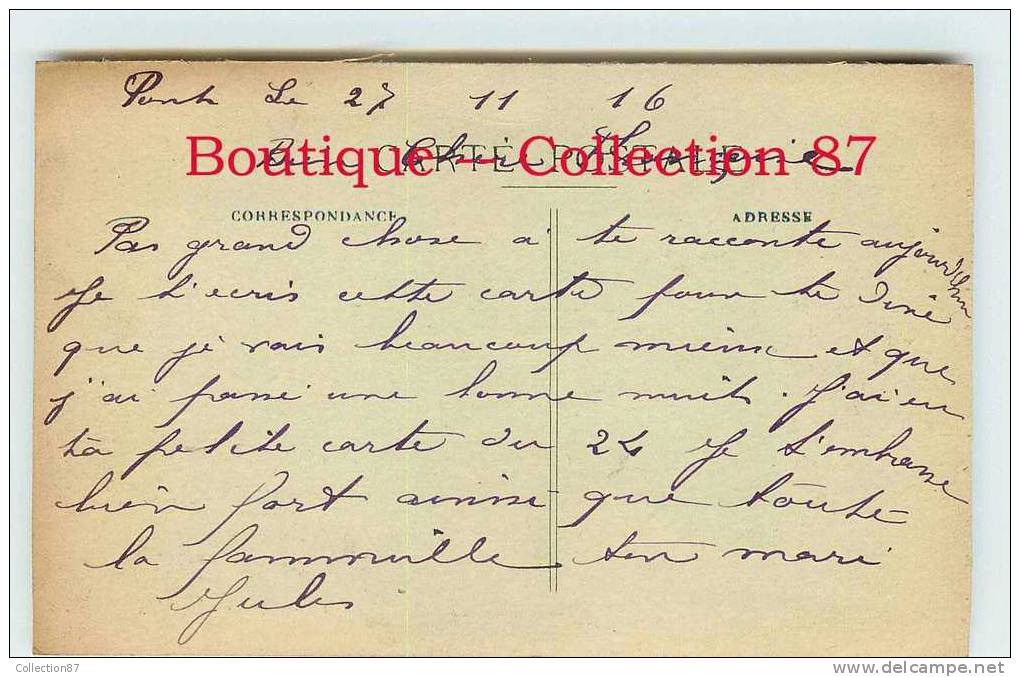 Le 27 11 16
Boutique - Collection 87
CARTE POSTALE
Bien Chère
CORRESPONDANCE ADRESSE
Pas grand chose a te raconte aujourd'hui
Je t'ecris cette carte pour te dire
que je vais beaucoup mieux et que
j'ai passé une bonne nuit. J'ai eu
ta petite carte du 24 Je t'embrasse
bien fort ainsi que toute
la fammille ton mari
Jules
Collection87
delcampe.net